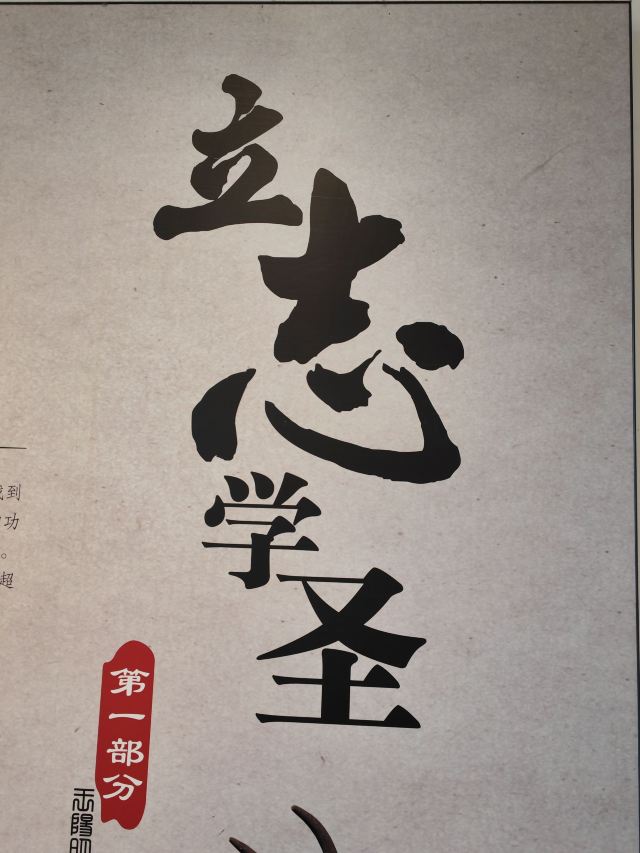 立志学圣
第一部分
到
功
。
超